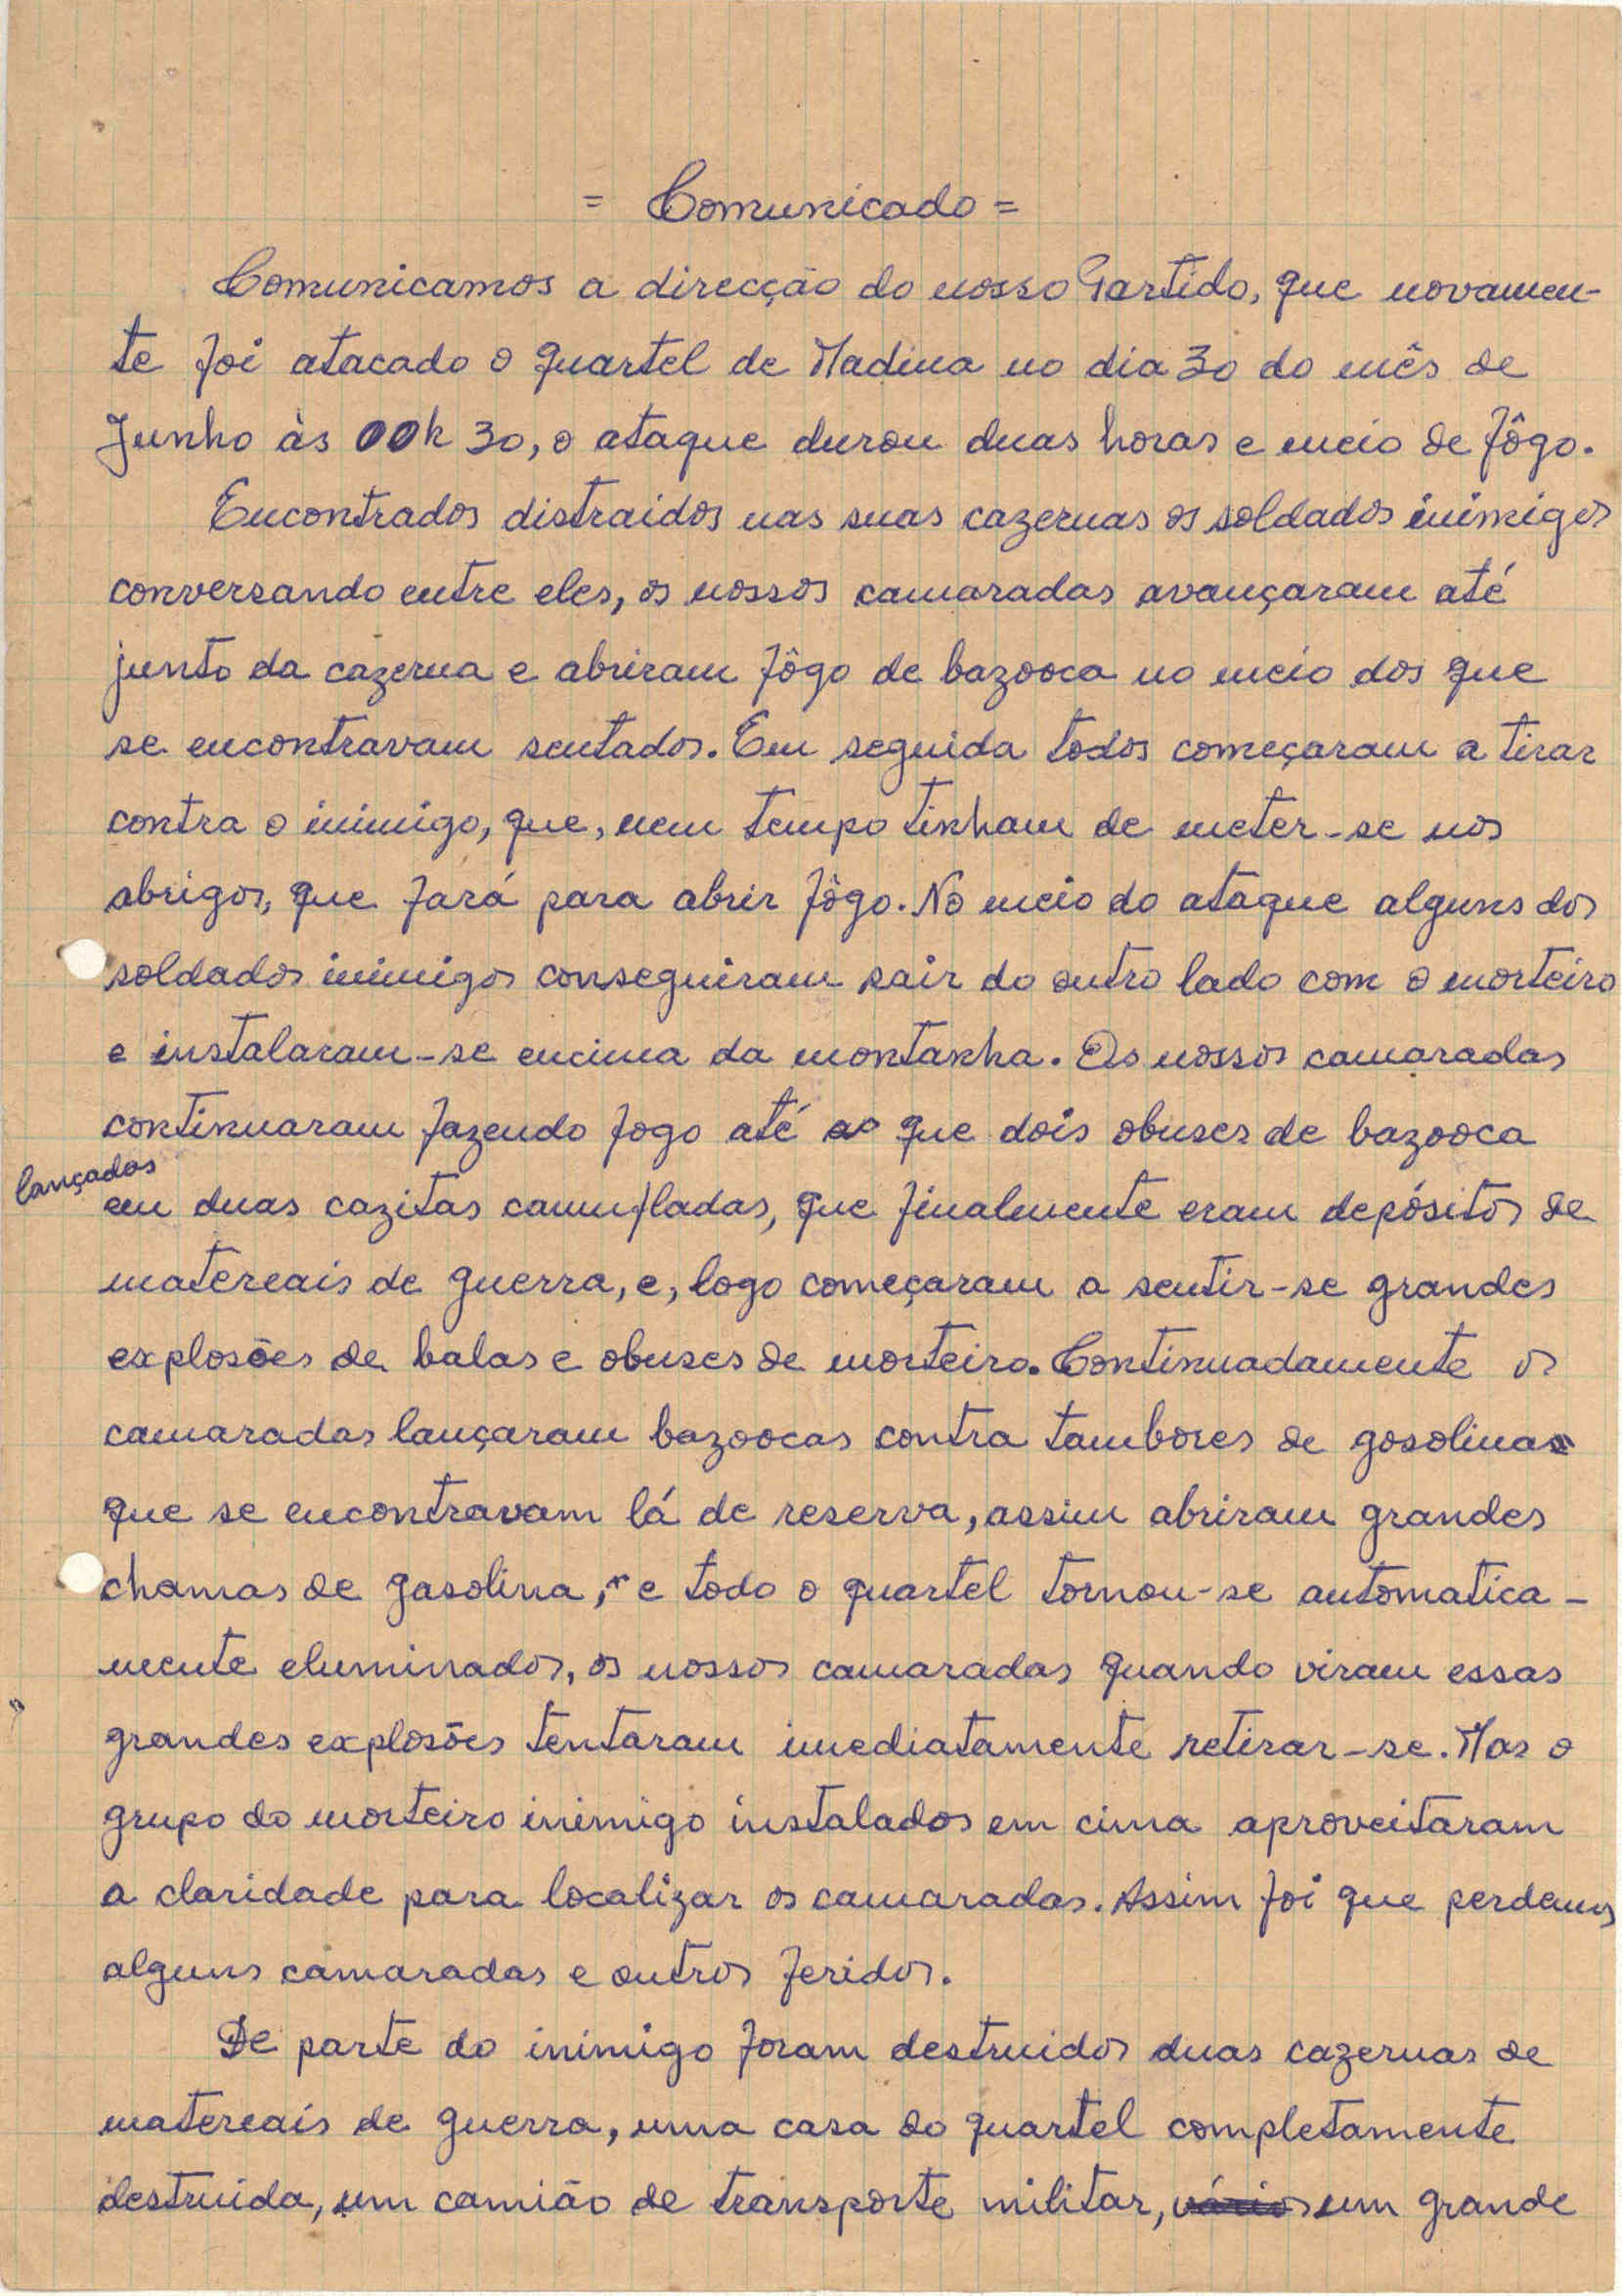 = Comunicado =
Comunicamos a direcção do nosso Partido, que novamen-
te foi atacado o quartel de Madina no dia 30 do mês de
Junho às 00h 30, o ataque durou duas horas e meio de fôgo.
Encontrados distraidos nas suas cazernas os soldados inimigos
conversando entre eles, os nossos camaradas avançaram até
junto da cazerna e abriram fôgo de bazooca no meio dos que
se encontravam sentados. Em seguida todos começaram a tirar
contra o inimigo, que, nem tempo tinham de meter-se nos
abrigos, que fará para abrir fôgo. No meio do ataque alguns dos
soldados inimigos conseguiram sair do outro lado com o morteiro
e instalaram-se encima da montanha. Os nossos camaradas
continuaram fazendo fogo até ao que dois obuses de bazooca
lançados
em duas cazitas camufladas, que finalmente eram depósitos de
matereais de guerra, e, logo começaram a sentir-se grandes
explosões de balas e obuses de morteiro. Continuadamente os
camaradas lançaram bazoocas contra tambores de gosolina
que se encontravam lá de reserva, assim abriram grandes
chamas de gasolina, e todo o quartel tornou-se automatica-
mente eluminados, os nossos camaradas quando viram essas
grandes explosões tentaram imediatamente retirar-se. Mas o
grupo do morteiro inimigo instalados em cima aproveitaram
a claridade para localizar os camaradas. Assim foi que perdemos
alguns camaradas e outros feridos.
De parte do inimigo foram destruidos duas cazernas de
matereais de guerra, uma casa do quartel completamente
destruida, um camião de transporte militar, vários um grande